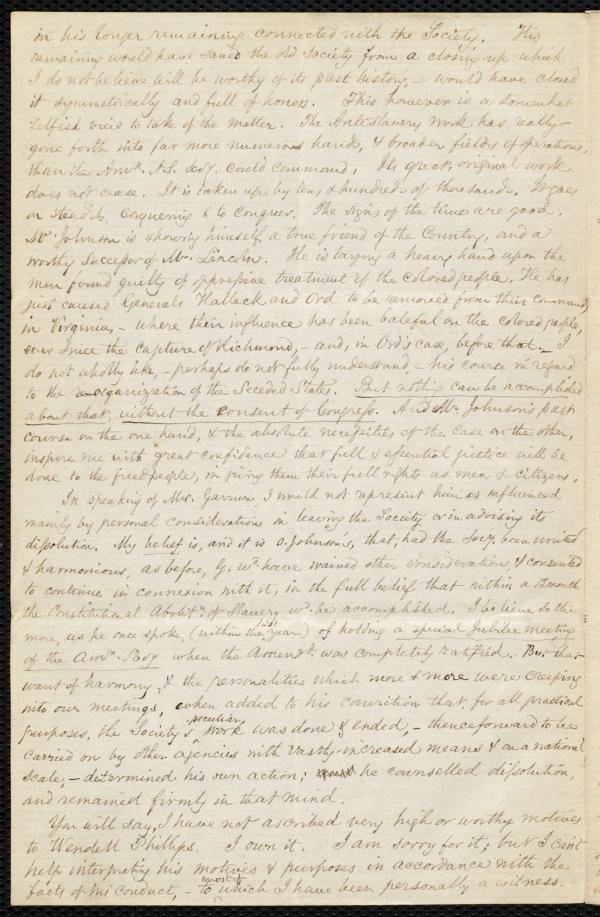 in his longer remaining connected with the Society. His
remaining would have saved the old Society from a closing up which
I do not believe will be worthy of its past history, - would have closed
it symmetrically and full of honors. This however is a somewhat
selfish view to take of the matter. The Antislavery work has really
gone forth into far more numerous hands, & broader fields of operations,
than the Amn. A.S. Socy. could command. Its great, original work
does not cease. It is taken up by tens & hundreds of thousands. It goes
on steadily, conquering & to conquer. The signs of the times are good.
Mr. Johnson is showing himself a true friend of the Country, and a
worthy successor of Mr. Lincoln. He is laying a heavy hand upon the
men found guilty of oppressive treatment of the colored people. He has
just caused Generals Halleck and Ord to be removed from their commands
in Virginia, - where their influence has been baleful on the colored people,
ever since the capture of Richmond, - and, in Ord's case, before that. - I
do not wholly like, - perhaps do not fully understand, - his course in regard
to the reorganization of the Seceded States. But nothing can be accomplished
about that, without the consent of Congress. And Mr. Johnson's past
course on the one hand, & the absolute necessities of the case on the other,
inspire me with great confidence that full & essential justice will be
done to the freedpeople, in giving them their full rights as men & citizens.
In speaking of Mr. Garrison, I would not represent him as influenced
mainly by personal considerations in leaving the Society or in advising its
dissolution. My belief is, and it is O. Johnson's, that, had the Socy. been united
& harmonious, as before, G. wd. have waived other considerations, & consented
to continue in connexion with it, in the full belief that within a 12 month
the Constitutional Abolitn. of Slavery wd. be accomplished. I believe so the
more, as he once spoke, (within the last year) of holding a special Jubilee meeting
of the Amn. Socy. when the Amendt. was completely ratified. But that
want of harmony, & the personalities which more & more were creeping
into our meetings, when added to his conviction that, for all practical
purposes, the Society's peculiar work was done & ended, - thenceforward to be
carried on by other agencies with vastly-increased means & on a national
scale, - determined his own action; he counselled dissolution,
and remained firmly in that mind.
You will say, I have not ascribed very high or worthy motives
to Wendell Phillips. I own it. I am sorry for it; but I can't
help interpreting his motives & purposes in accordance with the
facts of his conduct, - to most of which I have been personally a witness.